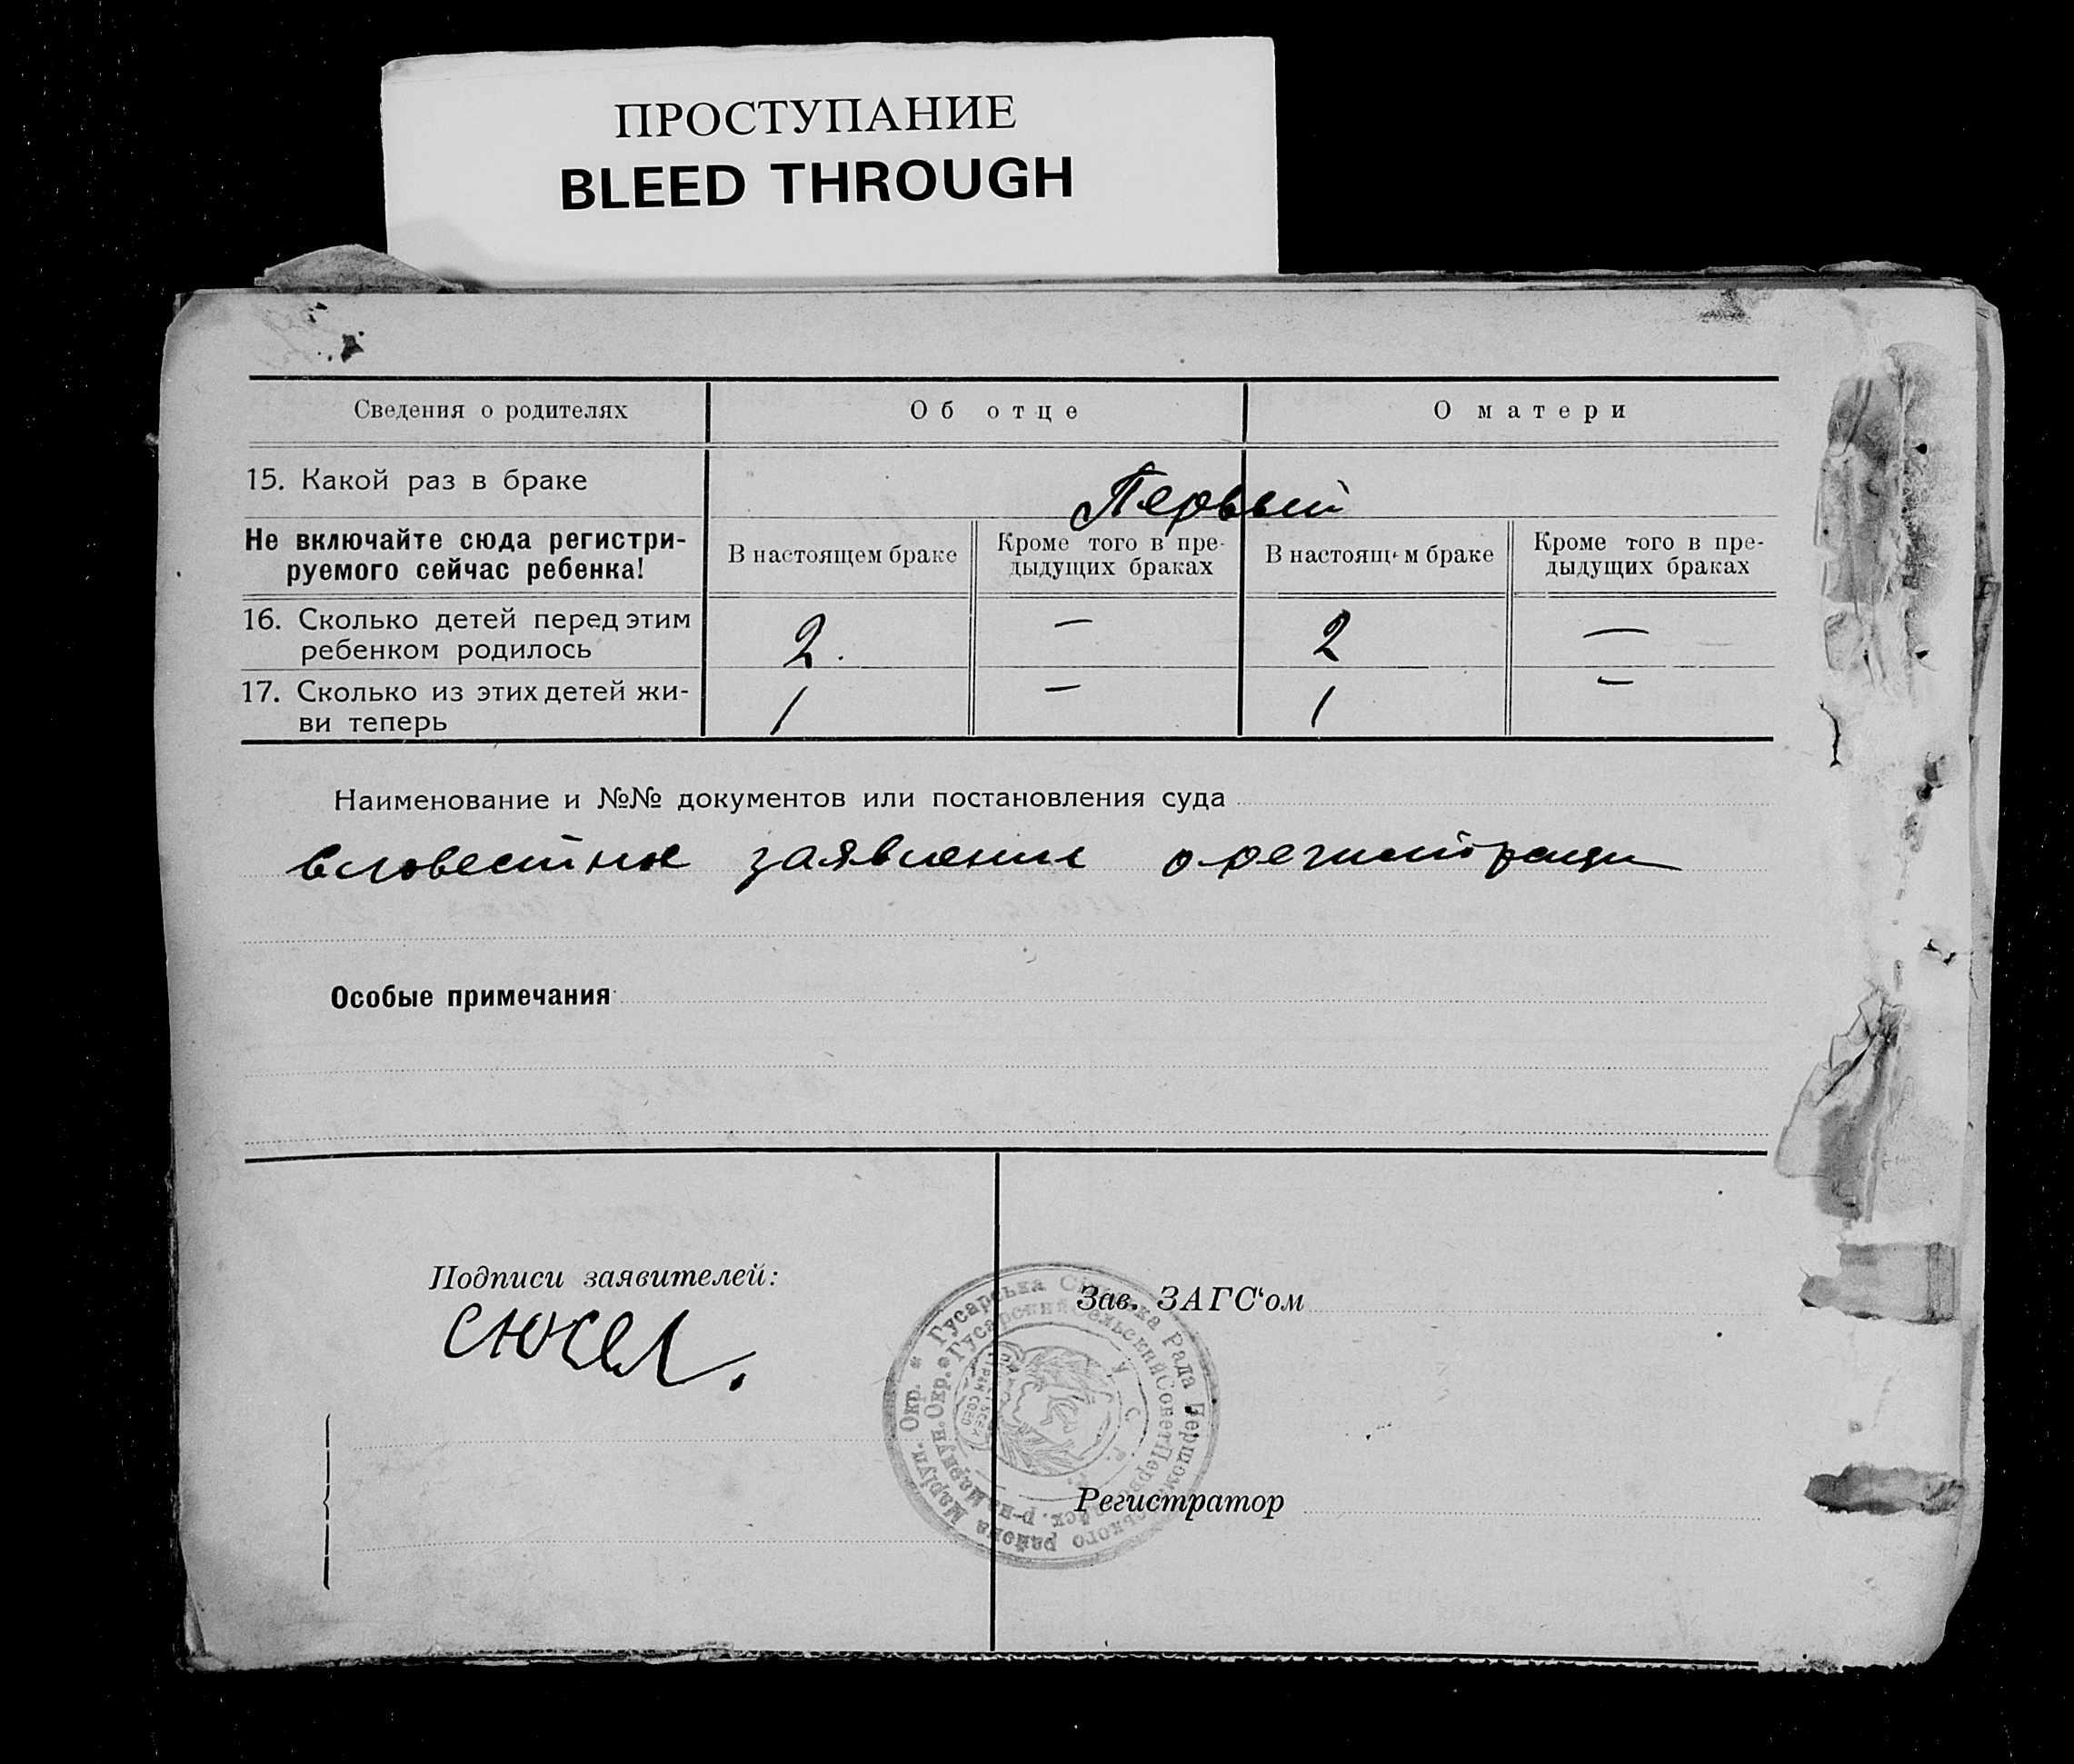 ПРОСТУПАНИЕ
BLEED THROUGH
Сведения о родителях
Об отце
О матери
15. Какой раз в браке
Первый
Не включайте сюда регистри-
руемого сейчас ребенка!
В настоящем браке
Кроме того в пре-
дыдущих браках
В настоящем браке
Кроме того в пре-
дыдущих браках
16. Сколько детей перед этим
ребенком родилось
2.
—
2
—
17. Сколько из этих детей жи-
ви теперь
1
—
1
—
Наименование и №№ документов или постановления суда
заявление о регистрации
Особые примечания
Подписи заявителей:
Зав. ЗАГС‘ом
Регистратор
Гусарська Сільська Рада Першомайського района Маріуп. Окр.
Гусарский Сельский Совет Первомайск. р-на Мариуп. Окр.